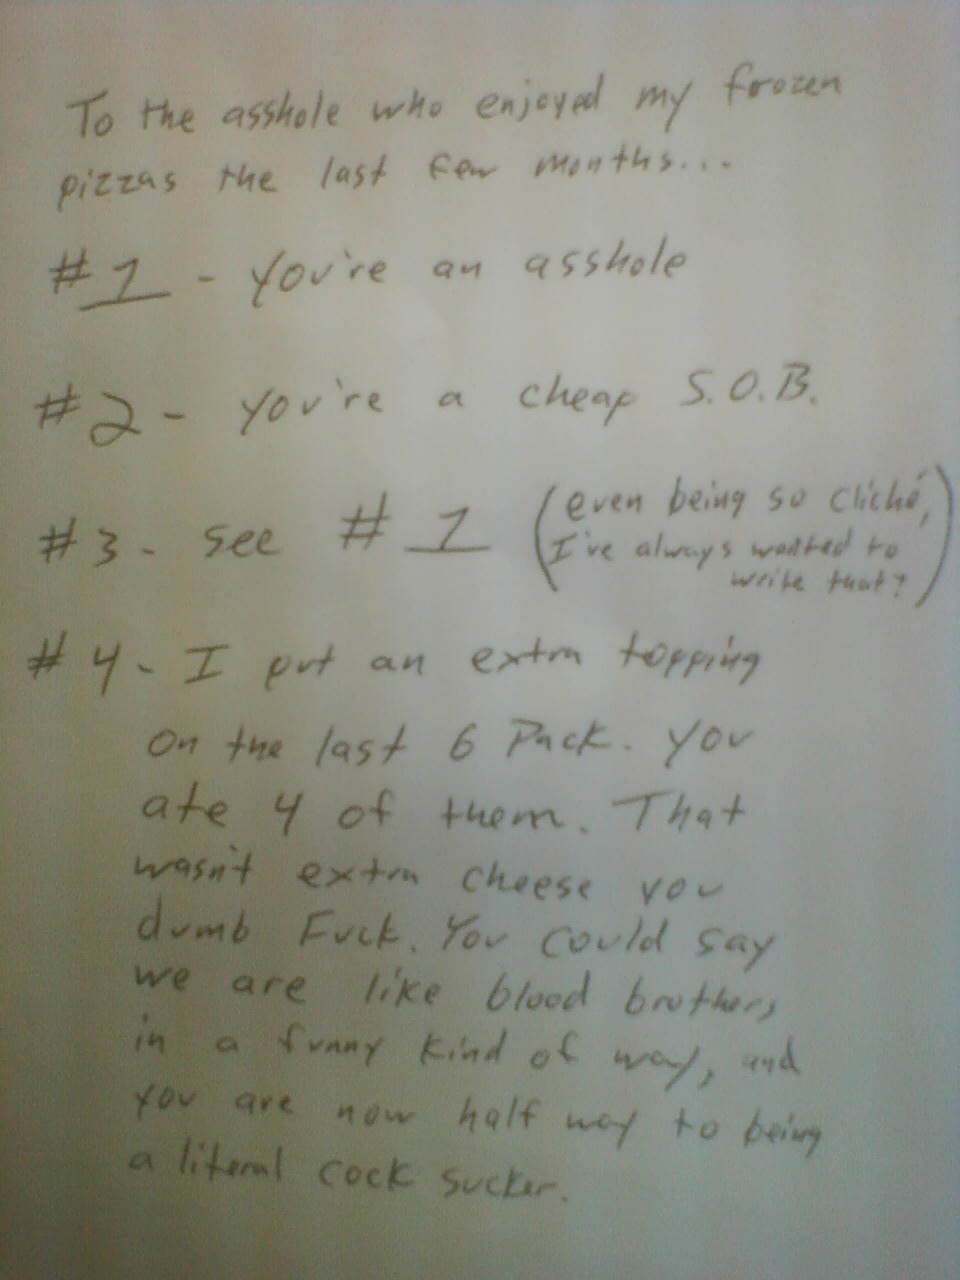 To the asshole who enjoyed my frozen
pizzas the last few months...
#1 - You're an asshole
#2 - you're a cheap S.O.B.
#3 - see #1 (even being so cliché,
I've always wanted to
write that?)
#4 - I put an extra topping
on the last 6 Pack. You
ate 4 of them. That
wasn't extra cheese you
dumb Fuck. You could say
we are like blood brothers
in a funny kind of way, and
you are now half way to being
a literal cock sucker.